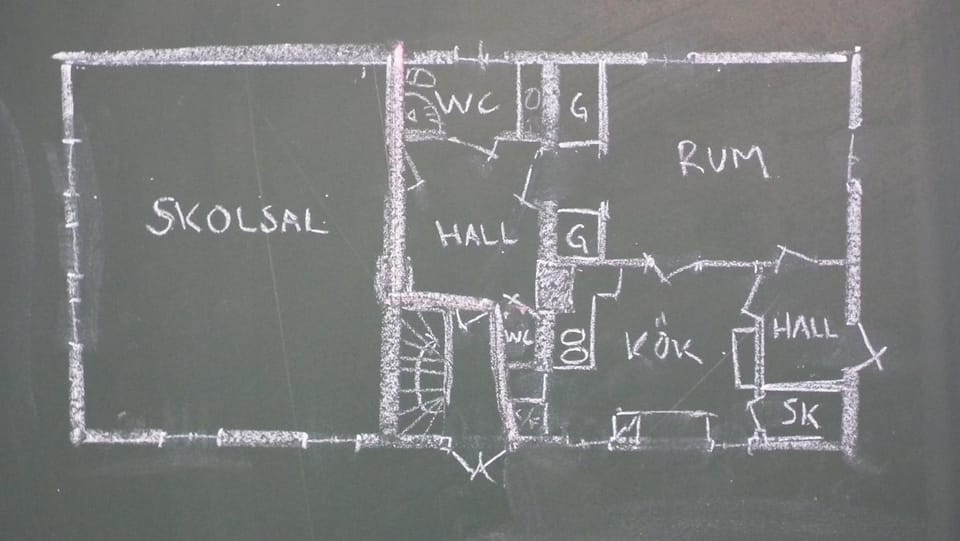 WC
G
RUM
SKOLSAL
HALL
G
WC
KÖK
HALL
SK